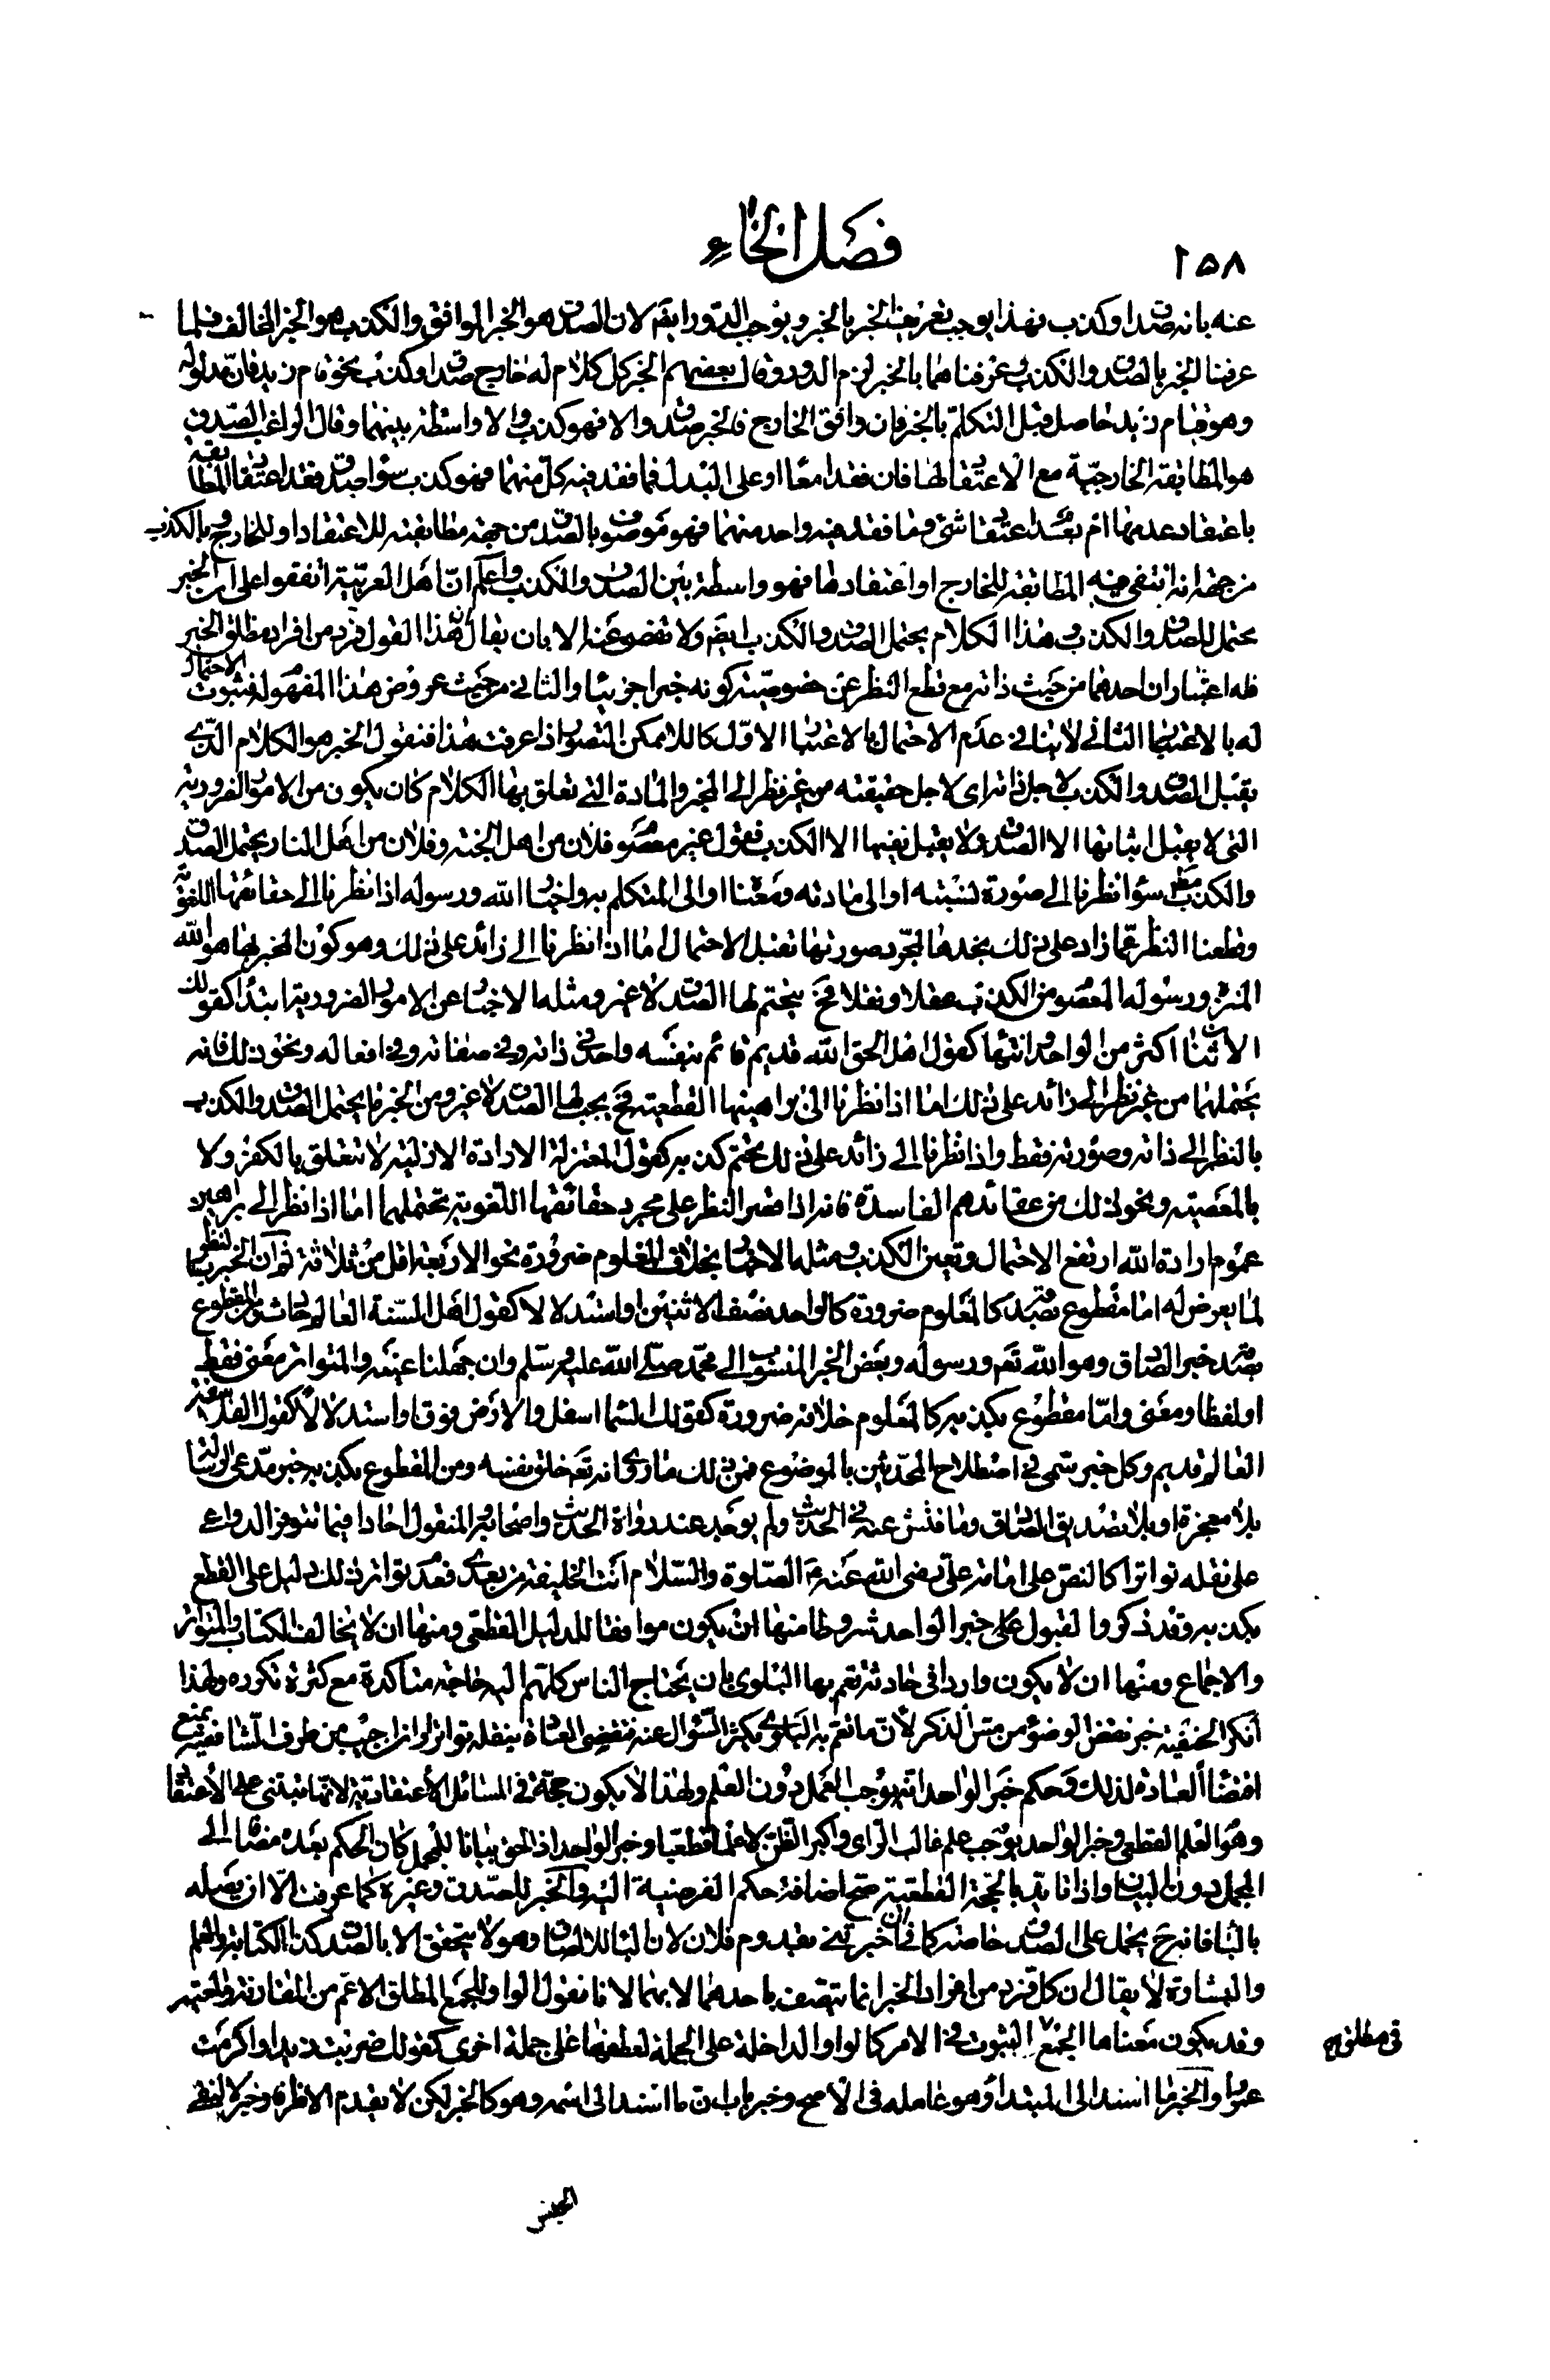 ١٥٨
فصل الخاء
عنه بانه صدق او كذب فهذا يوجب تعريف الخبر بالخبر ويوجب الدور ايضا لان الصدق هو الخبر الموافق والكذب هو الخبر المخالف فلما
عرفنا الخبر بالصدق والكذب وعرفناهما بالخبر لزم الدور وقال بعضهم الخبر كل كلام له خارج صدق او كذب نحو قام زيد فان مدلوله
وهو قيام زيد حاصل قبل التكلم بالخبر فان وافق الخارج فالخبر صدق والا فهو كذب ولا واسطة بينهما وقال الراغب الصدق
هو المطابقة الخارجية مع الاعتقاد لها فان فقدا معا او على البدل فما فقد فيه كل منهما فهو كذب سواء صدق فقد اعتقاد المطابقة
باعتقاد عدمها ام بعدم اعتقاد شئ وما فقد فيه واحد منهما فهو موصوف بالصدق من جهة مطابقته للاعتقاد او للخارج وبالكذب
من جهة انه انتفى فيه المطابقة للخارج او اعتقادها فهو واسطة بين الصدق والكذب واعلم ان اهل العربية اتفقوا على ان الخبر
محتمل للصدق والكذب وهذا الكلام يحتمل الصدق والكذب ايضا ولا تفصى عنه الا بان يقال ان هذا القول فرد من افراد مطلق الخبر
فله اعتباران احدهما من حيث ذاته مع قطع النظر عن خصوصية كونه خبرا جزئيا والثاني من حيث عروض هذا المفهوم له فثبوت الاحتمال
له بالاعتبار الثاني لا ينافي عدم الاحتمال بالاعتبار الاول كاللاممكن التصور اذا عرفت هذا فنقول الخبر هو الكلام الذي
يقبل الصدق والكذب لاجل ذاته اى لاجل حقيقته من غير نظر الى المخبر والمادة التي تعلق بها الكلام كان يكون من الامور الضرورية
التى لا يقبل اثباتها الا الصدق ولا يقبل نفيها الا الكذب فقول غير معصوم فلان من اهل الجنة وفلان من اهل النار يحتمل الصدق
والكذب مطلقا سواء نظرنا الى صورة نسبته او الى مادته ومعناه او الى المتكلم به واخبار الله ورسوله اذا نظرنا الى حقائقها اللغوية
وقطعنا النظر عما زاد على ذلك نجدها لمجرد صورتها تقبل الاحتمال اما اذا نظرنا الى زائد على ذلك وهو كون المخبر بها هو الله
المنزه ورسوله المعصوم من الكذب عقلا ونقلا فح يتحتم لها الصدق لا غير ومثله الاخبار عن الامور الضرورية ابتداء كقولك
الاثنان اكثر من الواحد او انتهاء كقول اهل الحق الله قديم قائم بنفسه واحد في ذاته وفي صفاته وفي افعاله ونحو ذلك فانه
يحتملهما من غير نظر الى زائد على ذلك اما اذا نظرنا الى براهينها القطعية فح يجب لها الصدق لا غير ومن الخبر ما يحتمل الصدق والكذب
بالنظر الى ذاته وصورته فقط واذا نظرنا الى زائد على ذلك يتحتم كذبه كقول المعتزلة الارادة الازلية لا تتعلق بالكفر ولا
بالمعصية ونحو ذلك من عقائدهم الفاسدة فانه اذا قصر النظر على مجرد حقائقها اللغوية تحتملهما اما اذا نظر الى براهين
عموم ارادة الله ارتفع الاحتمال وتعين الكذب ومثله الاخبار بخلاف المعلوم ضرورة نحو الاربعة اقل من ثلاثة ثم ان الخبر بالنظر
لما يعرض له اما مقطوع بصدقه كالمعلوم ضرورة كالواحد نصف الاثنين او استدلالا كقول اهل السنة العالم حادث والمقطوع
بصدقه خبر الصادق وهو الله تعم ورسوله وبعض الخبر المنسوب الى محمد صلى الله عليه وسلم وان جهلنا عينه والمتواتر معنى فقط
او لفظا ومعنى واما مقطوع بكذبه كالمعلوم خلافه ضرورة كقولك السماء اسفل والارض فوق او استدلالا كقول الفلاسفة
العالم قديم وكل خبر سمى في اصطلاح المحدثين بالموضوع فمن ذلك ما روى انه تعم خلق نفسه ومن المقطوع بكذبه خبر مدعى الرسالة
بلا معجزة او بلا تصديق الصادق وما فتش عنه في الحديث ولم يوجد عند رواة الحديث واصحابه والمنقول احادا فيما تتوفر الدواعي
على نقله تواترا كالنص على امامة علي رضى الله عنه عليه الصلوة والسلام انت الخليفة من بعدى فعدم تواتر ذلك دليل على القطع
بكذبه وقد ذكروا لقبول خبر الواحد شروطا منها ان يكون موافقا للدليل القطعى ومنها ان لا يخالف الكتاب والمتواتر
والاجماع ومنها ان لا يكون واردا في حادثة تعم بها البلوى بان يحتاج الناس كلهم اليه حاجة متاكدة مع كثرة تكرره ولهذا
أنكر الحنفية خبر نقض الوضوء من مس الذكر لان ما تعم به البلوى يكثر السؤال عنه فتقضى العادة بنقله تواترا واجيب من طرف الشافعية بمنع
اقتضاء العادة لذلك وحكم خبر الواحد انه يوجب العمل دون العلم ولهذا لا يكون حجة في المسائل الاعتقادية لانها تبتنى على الاعتقاد
وهو العلم القطعى وخبر الواحد يوجب علم غالب الراى واكبر الظن لا علما قطعيا وخبر الواحد اذا لحق بيانا للمجمل كان الحكم بعده مضافا الى
المجمل دون البيان واذا تايد بالحجة القطعية صح اضافة حكم الفرضية اليه والخبر للصدق وغيره كما عرفت الا ان يصله
بالباء فانه ح يحمل على الصدق خاصة كما في ان اخبرتني بقدوم فلان لان الباء للالصاق وهو لا يتحقق الا بالصدق كذا الكتابة والعلم
والبشارة لا يقال ان كل فرد من افراد الخبر انما يتصف باحدهما لا بهما لانا نقول الواو للجمع المطلق الاعم من المقارنة والمعية
وقد يكون معناها الجمع في مطلق الثبوت في الامر كالواو الداخلة على الجملة لعطفها على جملة اخرى كقولك ضربت زيدا واكرمت
عمرا والخبر ما اسند الى المبتدا وهو عامله في الاصح وخبر باب ان ما اسند الى اسمه وهو كالخبر لكن لا يقدم الا ظرفا وخبر لا لنفى
الجنس